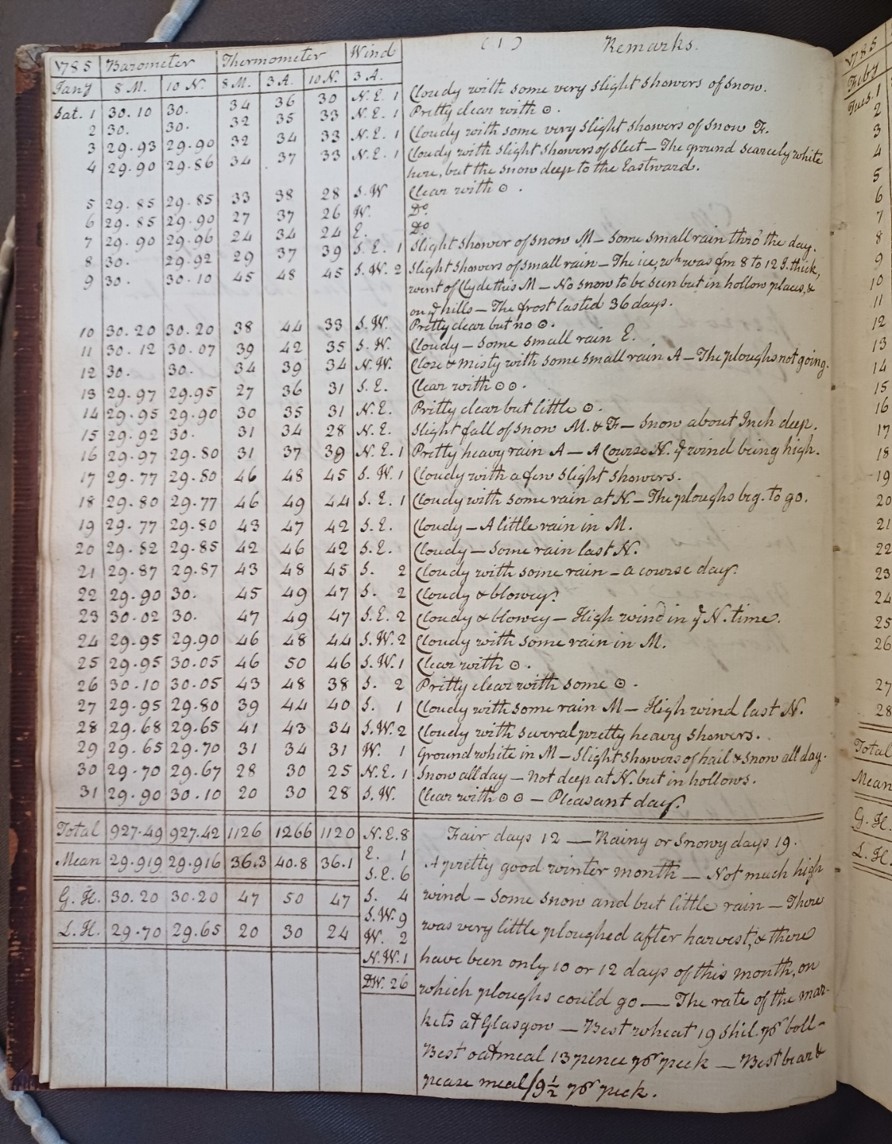 (1) Remarks.
1785 Barometer Thermometer Wind
Jany 8 M. 10 N. 8 M. 3 A. 10 N. 3 A.
Sat. 1 30.10 30. 34 36 30 N.E. 1 Cloudy with some very slight showers of snow.
2 30. 30. 32 35 33 N.E. 1 Pritty clear with ⊙.
3 29.93 29.90 32 34 33 N.E. 1 Cloudy with some very slight showers of snow F.
4 29.90 29.86 34 37 33 N.E. 1 Cloudy with slight showers of sleet — The ground scarcely white
here, but the snow deep to the Eastward.
5 29.85 29.85 33 38 28 S.W Clear with ⊙.
6 29.85 29.90 27 37 26 W. Do
7 29.90 29.96 24 34 24 E. Do
8 30. 29.92 29 37 39 S.E. 1 Slight shower of snow M — Some small rain thro' the day.
9 30. 30.10 45 48 45 S.W. 2 Slight showers of small rain — The ice, wh was fm 8 to 12 I. thick,
went of Clyde this M — No snow to be seen but in hollow places, &
on ye hills — The frost lasted 36 days.
10 30.20 30.20 38 44 33 S.W. Pritty clear but no ⊙.
11 30.12 30.07 39 42 35 S.W. Cloudy — Some small rain E.
12 30. 30. 34 39 34 N.W. Close & misty with some small rain A — The ploughs not going.
13 29.97 29.95 27 36 31 S.E. Clear with ⊙⊙.
14 29.95 29.90 30 35 31 N.E. Pritty clear but little ⊙.
15 29.92 30. 31 34 28 N.E. Slight fall of snow M. & F — Snow about Inch deep.
16 29.97 29.80 31 37 39 N.E. 1 Pritty heavy rain A — A Course N. ye wind being high.
17 29.77 29.80 46 48 45 S.W. 1 Cloudy with a few slight showers.
18 29.80 29.77 46 49 44 S.E. 1 Cloudy with some rain at N — The ploughs beg. to go.
19 29.77 29.80 43 47 42 S.E. Cloudy — A little rain in M.
20 29.82 29.85 42 46 42 S.E. Cloudy — Some rain last N.
21 29.87 29.87 43 48 45 S. 2 Cloudy with some rain — a course day.
22 29.90 30. 45 49 47 S. 2 Cloudy & blowey.
23 30.02 30. 47 49 47 S.E. 2 Cloudy & blowey — High wind in ye N. time.
24 29.95 29.90 46 48 44 S.W. 2 Cloudy with some rain in M.
25 29.95 30.05 46 50 46 S.W. 1 Clear with ⊙.
26 30.10 30.05 43 48 38 S. 2 Pritty clear with some ⊙.
27 29.95 29.80 39 44 40 S. 1 Cloudy with some rain M — High wind last N.
28 29.68 29.65 41 43 34 S.W. 2 Cloudy with several pretty heavy showers.
29 29.65 29.70 31 34 31 W. 1 Ground white in M — Slight showers of hail & snow all day.
30 29.70 29.67 28 30 25 N.E. 1 Snow all day — Not deep at N. but in hollows.
31 29.90 30.10 20 30 28 S.W. Clear with ⊙⊙ — Pleasant day.
Total 927.49 927.42 1126 1266 1120 N.E. 8
Mean 29.919 29.916 36.3 40.8 36.1 E. 1
S.E. 6
G. H. 30.20 30.20 47 50 47 S. 4
S.W. 9
L. H. 29.70 29.65 20 30 24 W. 2
N.W. 1
DW. 26
Fair days 12 — Rainy or Snowy days 19.
A pritty good winter month — Not much high
wind — Some snow and but little rain — There
was very little ploughed after harvest, & there
have been only 10 or 12 days of this month, on
which ploughs could go — The rate of the mar-
kets at Glasgow — Best wheat 19 Shil. pr boll —
Best oatmeal 13 pence pr peck — Best bear &
pease meal / 9½ pr peck.
1785
Feby
Tues. 1
2
3
4
5
6
7
8
9
10
11
12
13
14
15
16
17
18
19
20
21
22
23
24
25
26
27
28
Total
Mean
G. H.
L. H.